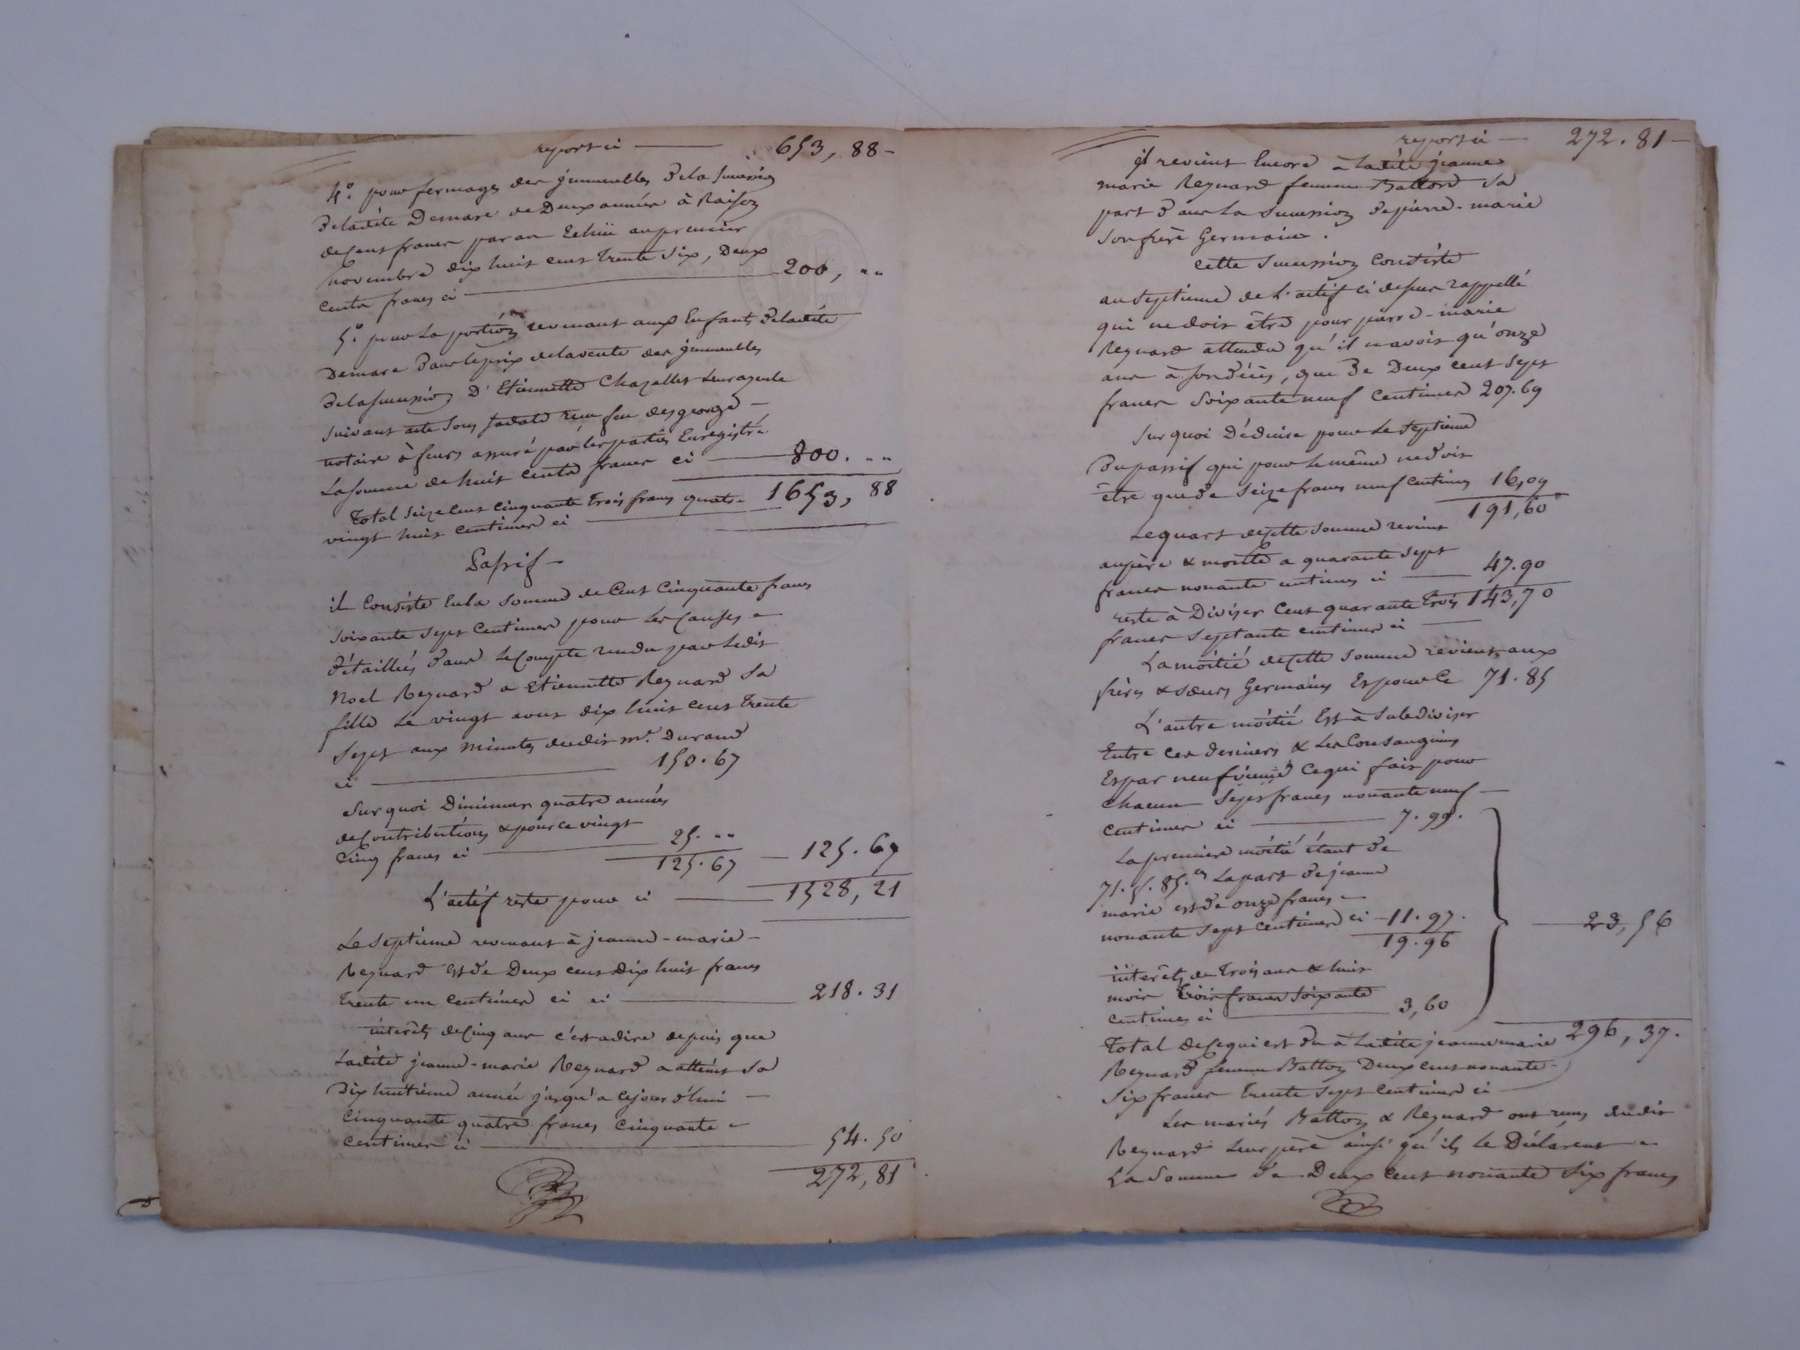 report ci — 653, 88 -
4°. pour fermages des jmmeubles de la succession
de ladite Demare de Deux années à Raison
de Cent francs par an Echüe au premier
novembre dix huit cent trente six, Deux
cents francs ci — 200, "
5°. pour la portion revenant aux Enfants de ladite
Demare Dans le prix de la vente des jmmeubles
de la succession D'Etiennette Chazelles Leur ayeule
suivant acte sous
notaire à feurs assuré par les parties Enregistré
La somme de huit cents francs ci — 800. "
Total seize Cent Cinquante trois francs quatre- 1653, 88
vingt huit centimes ci —
Passif —
il Consiste En la somme de Cent Cinquante francs
soixante sept Centimes pour Les Causes
détaillées dans Le Compte rendu par Ledit
Noel Reynard a Etiennette Reynard Sa
fille Le vingt aout dix huit cent trente
sept aux minutes dudit me. Durand
ci — 150.67
Sur quoi Diminuer quatre années
de Contributions & pour ce vingt
Cinq francs ci — 25. "
125.67 — 125.67
L'actif reste pour ci — 1528, 21
Le septieme revenant à jeanne-marie-
Reynard Est de Deux cent dix huit francs
trente un Centimes ci ci — 218.31
interêts de Cinq ans c'est adire depuis que
Ladite jeanne-marie Reynard a atteint Sa
Dix huitieme année jusqu'a cejourd'hui —
Cinquante quatre francs Cinquante
Centimes ci — 54.50
272,81
report ci — 272.81 —
jl revient Encore à Ladite jeanne
marie Reynard femme Batton Sa
part Dans La Succession de pierre-marie
Son frère Germain.
Cette Succession Consiste
au septieme de L'actif ci dessus rappellé
qui ne doit être pour pierre-marie
Reynard attendu qu'il n'avoit qu'onze
ans à son décès, que De Deux cent sept
francs soixante neuf Centimes 207.69
Sur quoi Déduire pour Le septieme
Du passif qui pour le même ne doit
être que de seize francs neuf Centimes 16,09
191,60
Le quart de cette somme revient
au père & monte a quarante sept
francs nonante centimes ci — 47.90
reste à Diviser Cent quarante trois 143,70
francs septante centimes ci —
La moitié de Cette Somme revient aux
frères & sœurs Germains Est pour Ce 71.85
L'autre moitié Est à Subdiviser
Entre ces derniers & Les Consanguins
Est par neuf vieme Ce qui fait pour
Chacun Sept francs nonante neuf —
Centimes ci — 7.99.
La premiere moitié étant de
71. f. 85. c. La part de jeanne
marie est de onze francs
nonante sept Centimes ci — 11.97.
19.96
interêts de trois ans & huit
mois trois francs soixante
centimes ci — 3,60
— 23,56
Total de Ce qui est du à Ladite jeanne marie 296, 37.
Reynard femme Batton Deux cent nonante-
Six francs trente sept Centimes ci —
Les mariés Batton & Reynard ont reçu dudit
Reynard Leur père ainsi qu'ils Le Déclarent
La Somme De Deux Cent nonante Six francs